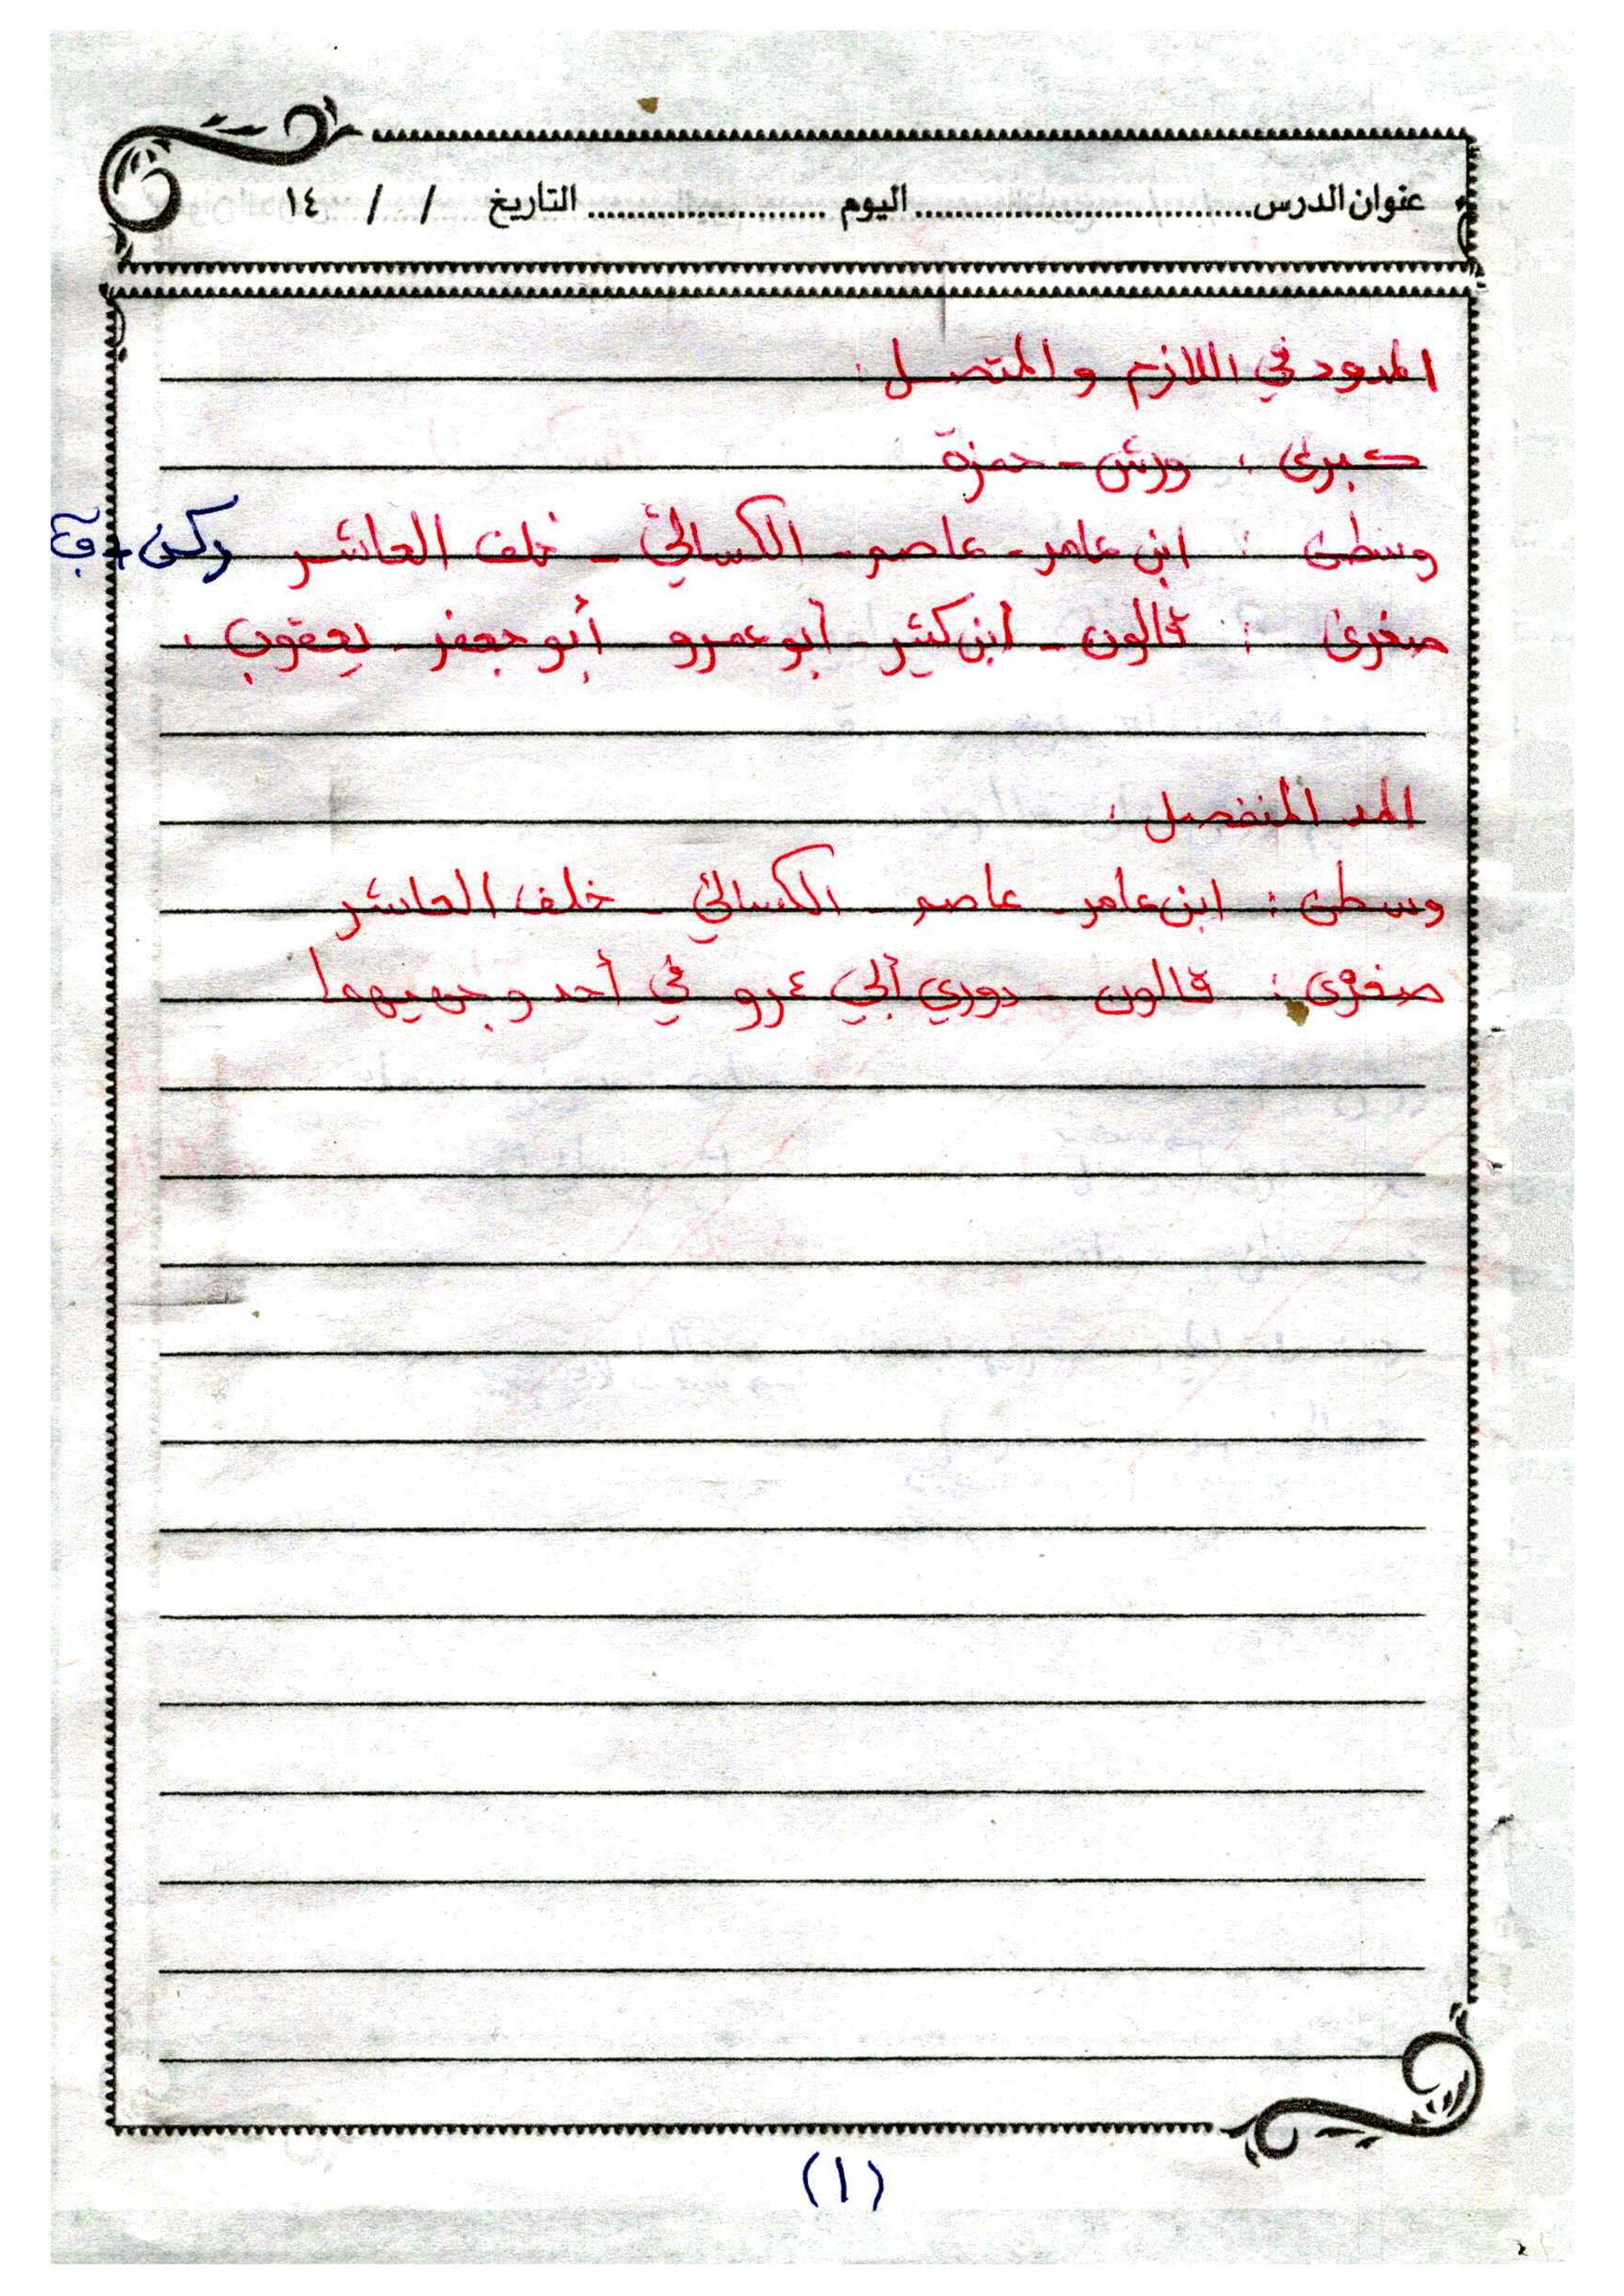 عنوان الدرس.................................اليوم ........................التاريخ / / ١٤
المدود في اللازم والمتصل :
كبرى : ورش - حمزة
وسطى : ابن عامر - عاصم - الكسائي - خلف العاشر
صغرى : قالون - ابن كثير - أبو عمرو أبو جعفر - يعقوب .
المد المنفصل :
وسطى : ابن عامر - عاصم - الكسائي - خلف العاشر
صغرى : قالون - دوري أبي عمرو في أحد وجهيهما
(١)